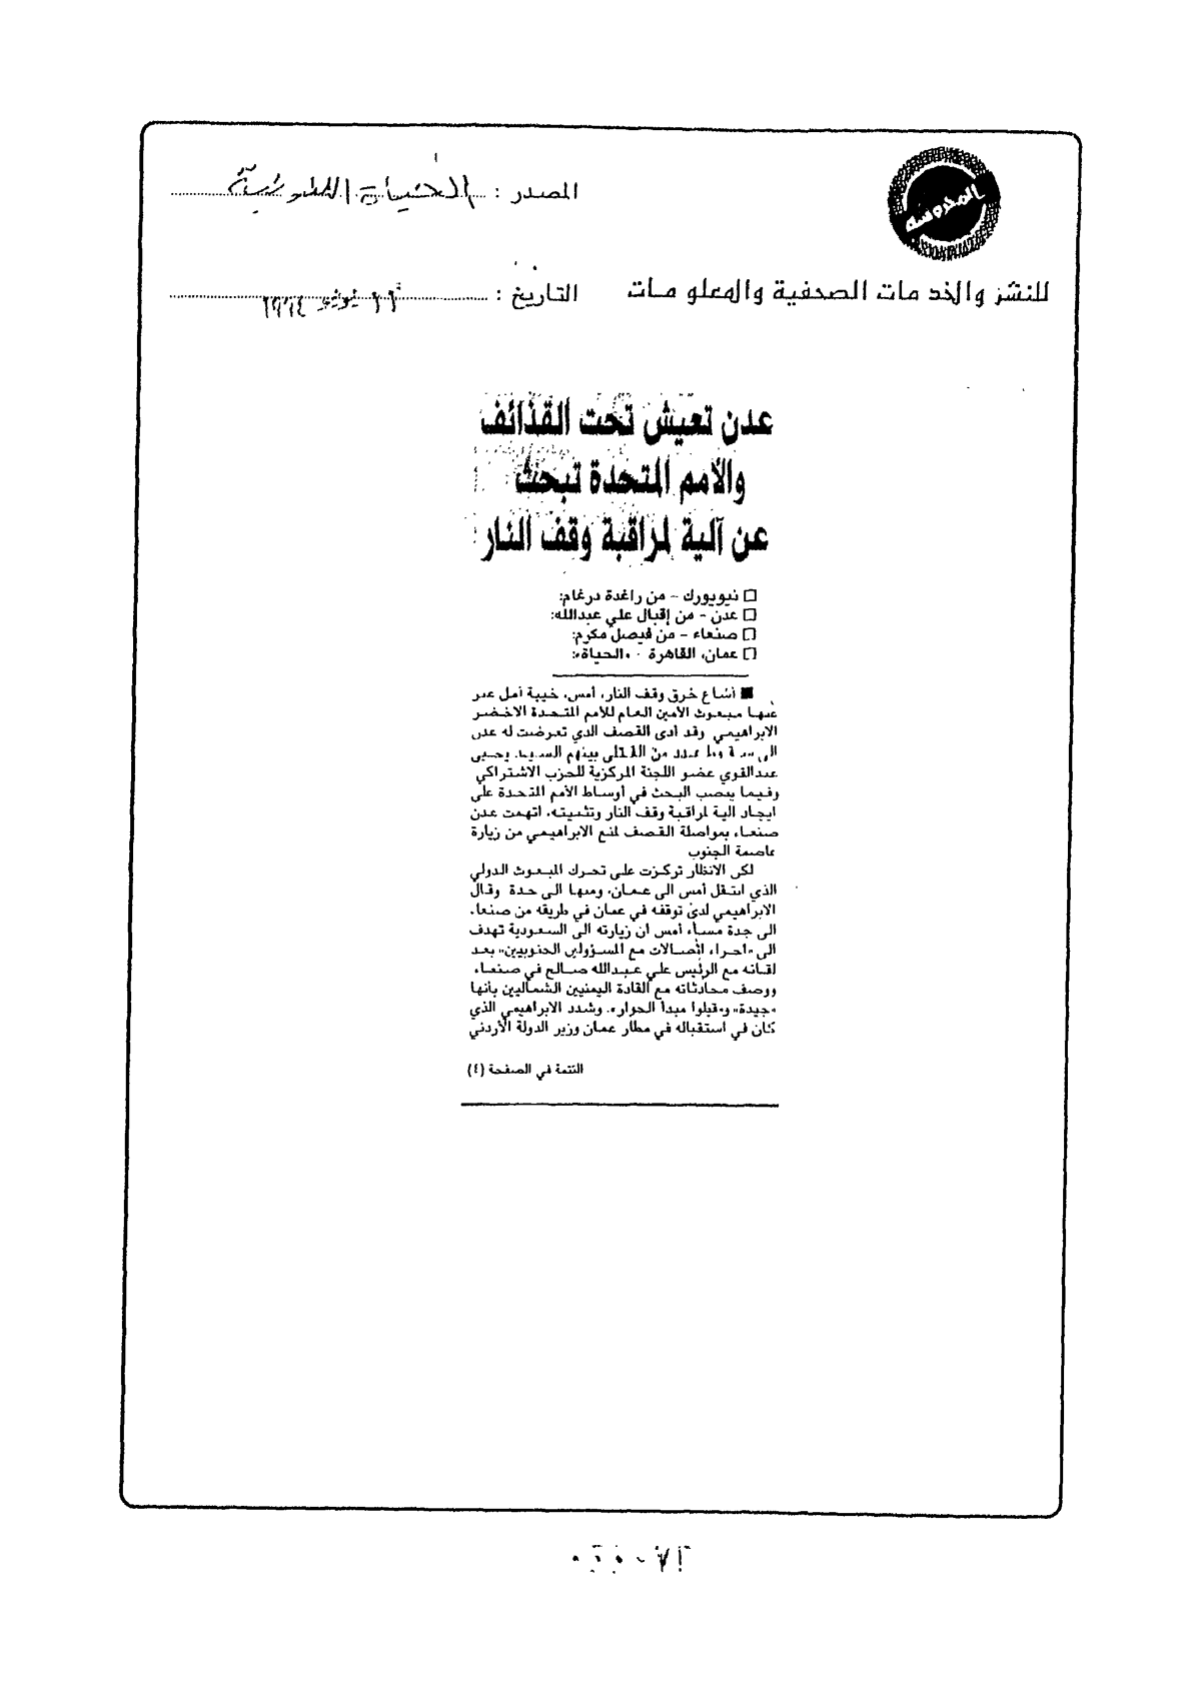 المحروسة
المصدر : الحياة اللندنية
للنشر والخدمات الصحفية والمعلومات
التاريخ : يونيو ١٩٩٤
عدن تعيش تحت القذائف
والأمم المتحدة تبحث
عن آلية لمراقبة وقف النار
□ نيويورك - من راغدة درغام:
□ عدن - من إقبال علي عبدالله:
□ صنعاء - من فيصل مكرم:
□ عمان، القاهرة - «الحياة»:
■ أشاع خرق وقف النار، أمس، خيبة أمل عبر
عنها مبعوث الأمين العام للأمم المتحدة الاخضر
الابراهيمي وقد أدى القصف الذي تعرضت له عدن
الى عدد من القتلى بينهم السيد يحيى
عبدالقوي عضو اللجنة المركزية للحزب الاشتراكي
وفيما ينصب البحث في أوساط الأمم المتحدة على
ايجاد الية لمراقبة وقف النار وتثبيته، اتهمت عدن
صنعاء بمواصلة القصف لمنع الابراهيمي من زيارة
عاصمة الجنوب
لكن الانظار تركزت على تحرك المبعوث الدولي
الذي انتقل أمس الى عمان، ومنها الى جدة وقال
الابراهيمي لدى توقفه في عمان في طريقه من صنعاء
الى جدة مساء أمس ان زيارته الى السعودية تهدف
الى «اجراء اتصالات مع المسؤولين الجنوبيين» بعد
لقائه مع الرئيس علي عبدالله صالح في صنعاء
ووصف محادثاته مع القادة اليمنيين الشماليين بأنها
«جيدة» و«قبلوا مبدأ الحوار». وشدد الابراهيمي الذي
كان في استقباله في مطار عمان وزير الدولة الأردني
التتمة في الصفحة (٤)